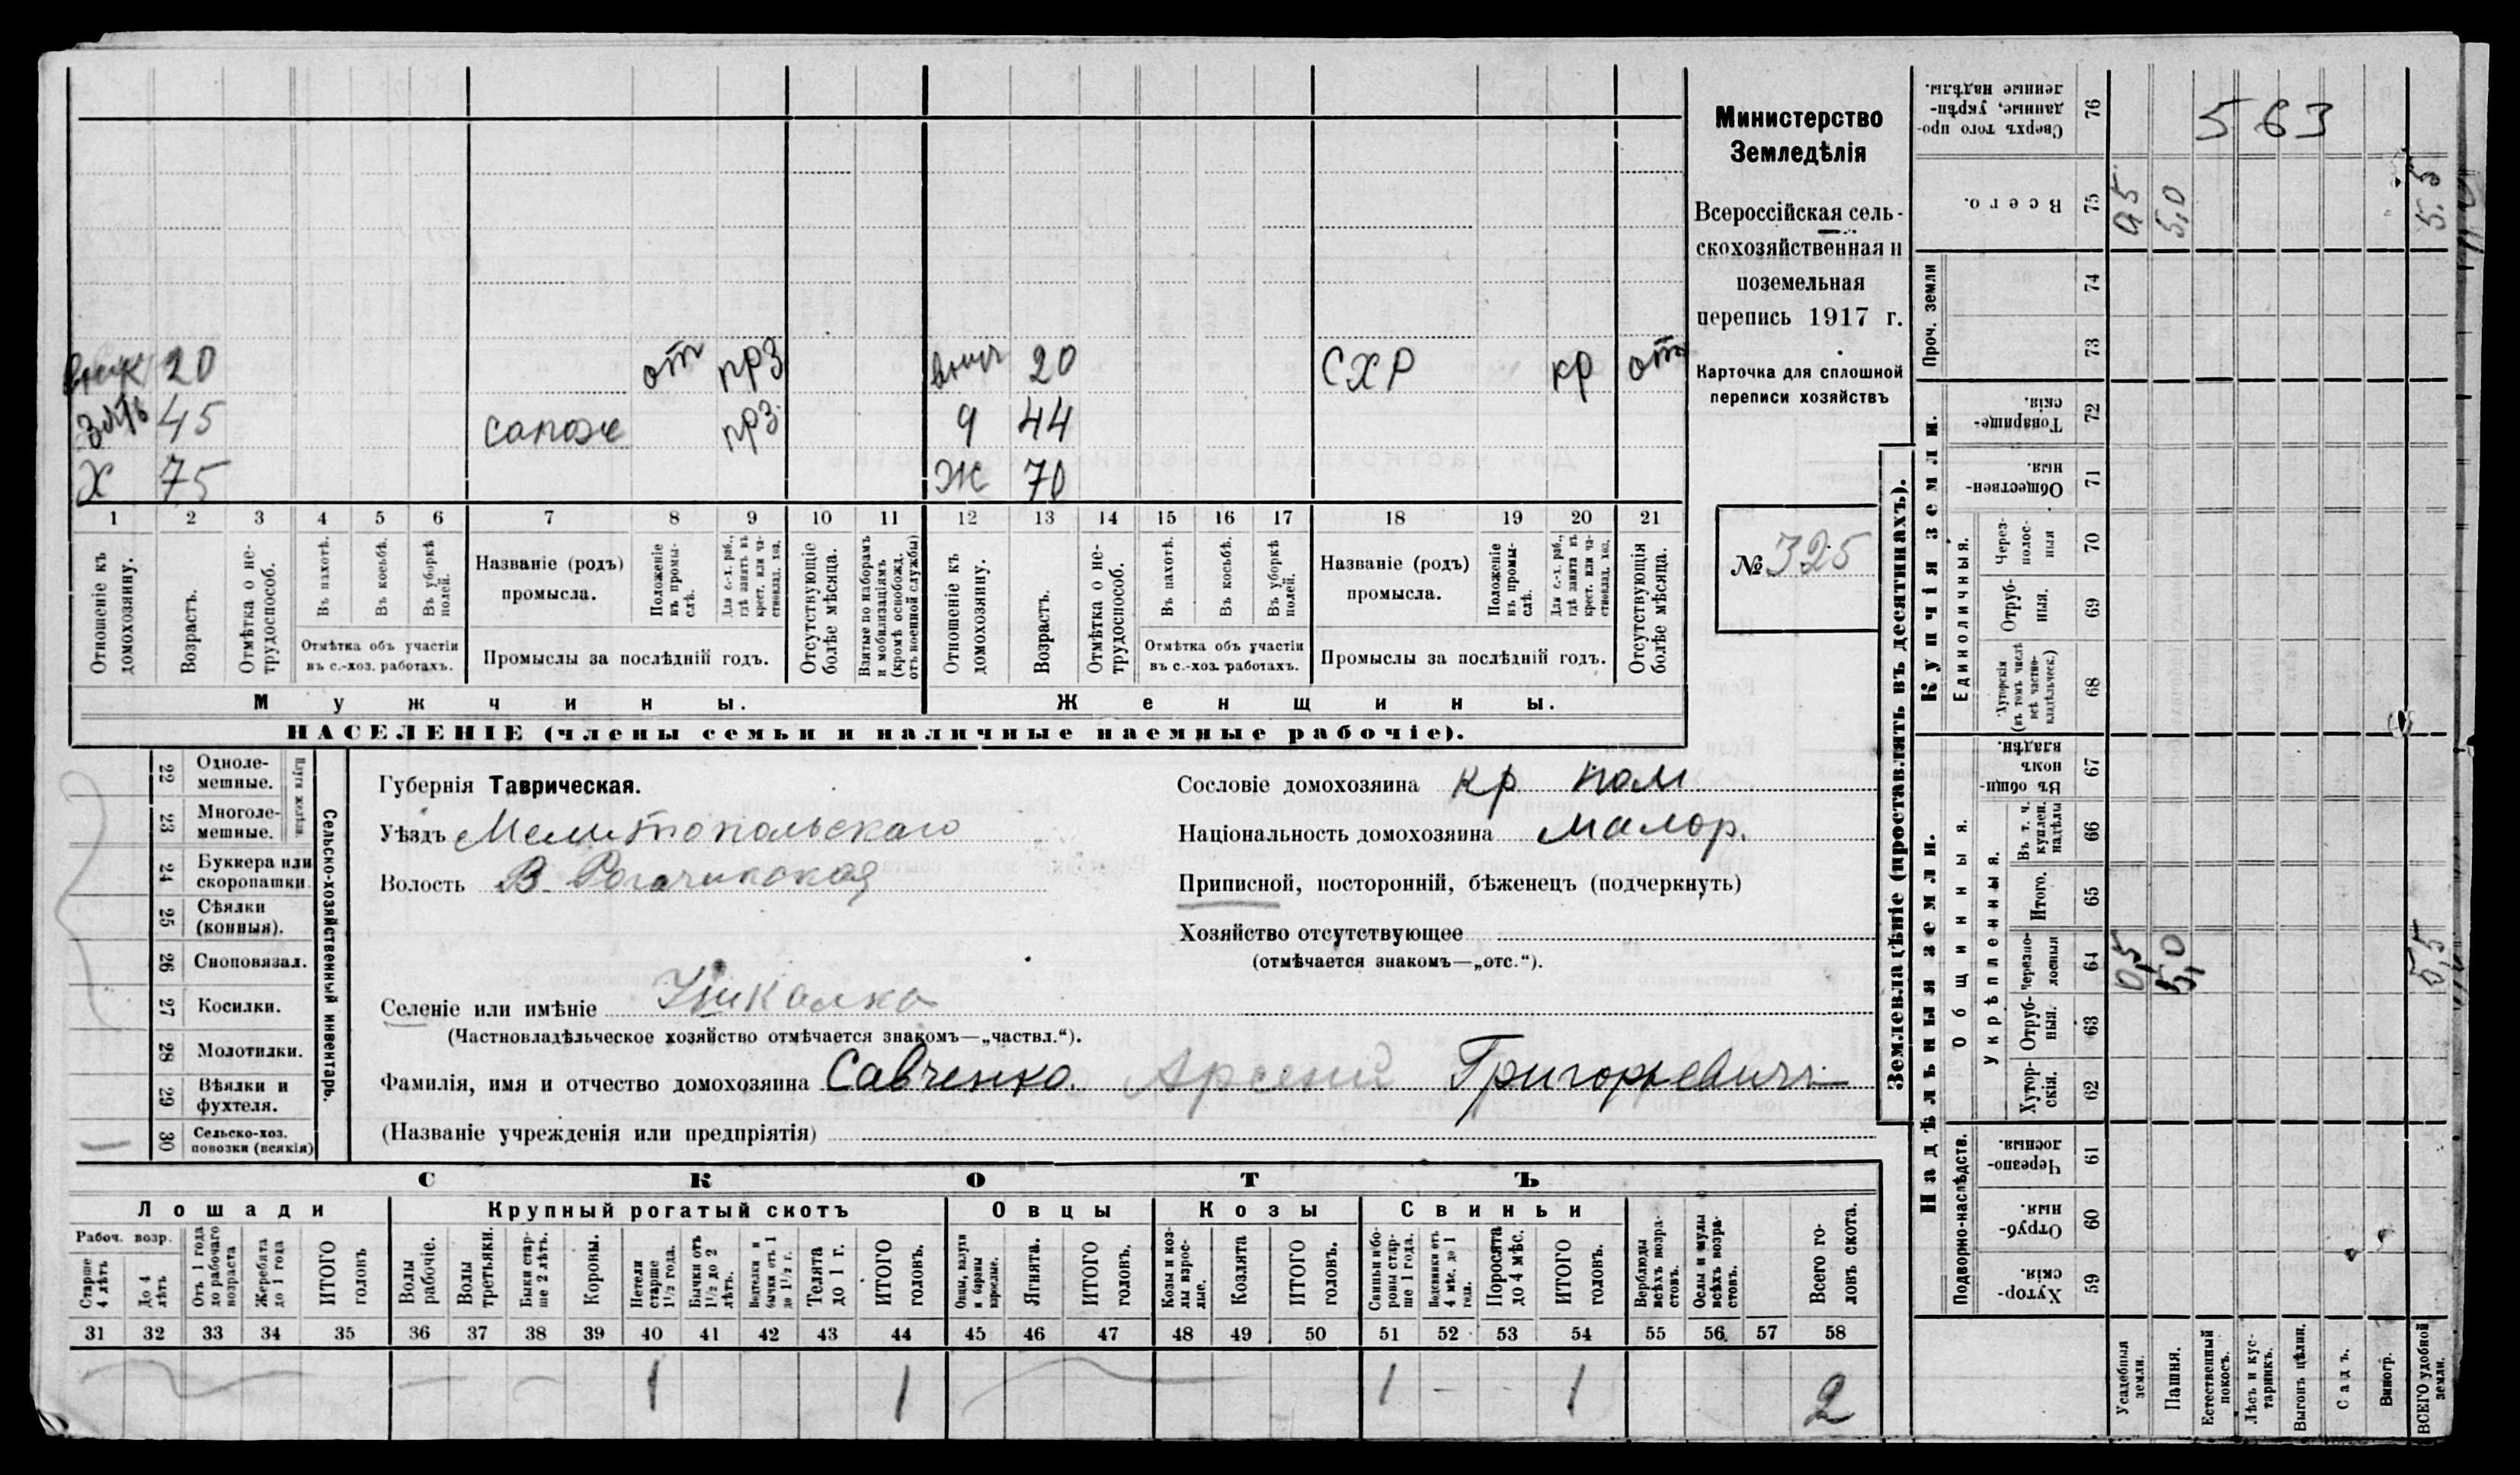 внук 20 от прз внуч 20 СХР кр от
зять 45 сапож прз. д 44
Х 75 Ж 70
1 2 3 4 5 6 7 8 9 10 11 12 13 14 15 16 17 18 19 20 21
Отношеніе къ домохозяину.
Возрастъ.
Отмѣтка о не-
трудоспособ.
Въ пахотѣ.
Въ косьбѣ.
Въ уборкѣ
полей.
Отмѣтка объ участіи
въ с.-хоз. работахъ.
Названіе (родъ)
промысла.
Положеніе
въ промы-
слѣ.
Для с.-х. раб.,
гдѣ занятъ въ
крест. или ча-
стновлад. хоз.
Промыслы за послѣдній годъ.
Отсутствующіе
болѣе мѣсяца.
Взятые по наборамъ
и мобилизаціямъ
(кромѣ освобожд.
отъ военной службы)
Отношеніе къ
домохозяину.
Возрастъ.
Отмѣтка о не-
трудоспособ.
Въ пахотѣ.
Въ косьбѣ.
Въ уборкѣ
полей.
Отмѣтка объ участіи
въ с.-хоз. работахъ.
Названіе (родъ)
промысла.
Положеніе
въ промы-
слѣ.
Для с.-х. раб.,
гдѣ занята въ
крест. или ча-
стновлад. хоз.
Промыслы за послѣдній годъ.
Отсутствующія
болѣе мѣсяца.
Мужчины.
Женщины.
НАСЕЛЕНІЕ (члены семьи и наличные наемные рабочіе).
Министерство
Земледѣлія
Всероссійская сель-
скохозяйственная и
поземельная
перепись 1917 г.
Карточка для сплошной
переписи хозяйствъ
№ 325
Сельско-хозяйственный инвентарь.
Плуги желѣзн.
22 Одноле-
мешные.
23 Многоле-
мешные.
24 Буккера или
скоропашки.
25 Сѣялки
(конныя).
26 Сноповязал.
27 Косилки.
28 Молотилки.
29 Вѣялки и
фухтеля.
30 Сельско-хоз.
повозки (всякія)
Губернія Таврическая.
Уѣздъ Мелитопольскаго
Волость В. Рогачикская
Селеніе или имѣніе
(Частновладѣльческое хозяйство отмѣчается знакомъ—„частвл.“).
Фамилія, имя и отчество домохозяина Савченко Арсеній Григорьевичъ
(Названіе учрежденія или предпріятія)
Сословіе домохозяина кр. пом
Національность домохозяина малор.
Приписной, посторонній, бѣженецъ (подчеркнуть)
Хозяйство отсутствующее
(отмѣчается знакомъ—„отс.“).
СКОТЪ
Лошади
Крупный рогатый скотъ
Овцы
Козы
Свиньи
Рабоч. возр.
Старше
4 лѣтъ
До 4
лѣтъ
Отъ 1 года
до рабочаго
возраста
Жеребята
до 1 года
ИТОГО
головъ
Волы
рабочіе.
Волы
третьяки.
Быки стар-
ше 2 лѣтъ.
Коровы.
Нетели
старше
1½ года.
Бычки отъ
1½ до 2
лѣтъ.
Водтелки и
бычки отъ 1
до 1½ г.
Телята
до 1 г.
ИТОГО
головъ.
Овцы, валухи
и бараны
взрослые.
Ягнята.
ИТОГО
головъ.
Козы и коз-
лы взрос-
лые.
Козлята
ИТОГО
головъ.
Свиньи и бо-
ровы стар-
ше 1 года.
Подсвинки отъ
4 мѣс. до 1
года.
Поросята
до 4 мѣс.
ИТОГО
головъ.
Верблюды
всѣхъ возра-
стовъ.
Ослы и мулы
всѣхъ возра-
стовъ.
Всего го-
ловъ скота.
31 32 33 34 35 36 37 38 39 40 41 42 43 44 45 46 47 48 49 50 51 52 53 54 55 56 57 58
1 1 1 1 2
Землевладѣніе (проставлять въ десятинахъ).
Купчія земли.
Надѣльныя земли.
Сверхъ того про-
данные, укрѣп-
ленные надѣлы.
76
563
Всего.
75
0,5 5,0 5.5
Проч. земли
74
73
Товарище-
скія.
72
Обществен-
ныя.
71
Единоличныя.
Через-
полос-
ныя
70
Отруб-
ныя.
69
Хуторскія
(въ томъ числѣ
всѣ частно-
владѣльческ.)
68
Общинныя.
Въ общин-
номъ
владѣн.
67
Укрѣпленныя.
Въ т. ч.
куплен.
надѣлы
66
Итого.
65
Черезпо-
лосныя
64
0,5 5,0 5,5
Отруб-
ныя.
63
Хутор-
скія.
62
Подворно-наслѣдств.
Черезпо-
лосныя.
61
Отруб-
ныя.
60
Хутор-
скія.
59
Усадебныя
земли.
Пашня.
Естественный
покосъ.
Лѣсъ и кус-
тарникъ.
Выгонъ цѣлин.
Садъ.
Виногр.
ВСЕГО удобной
земли.